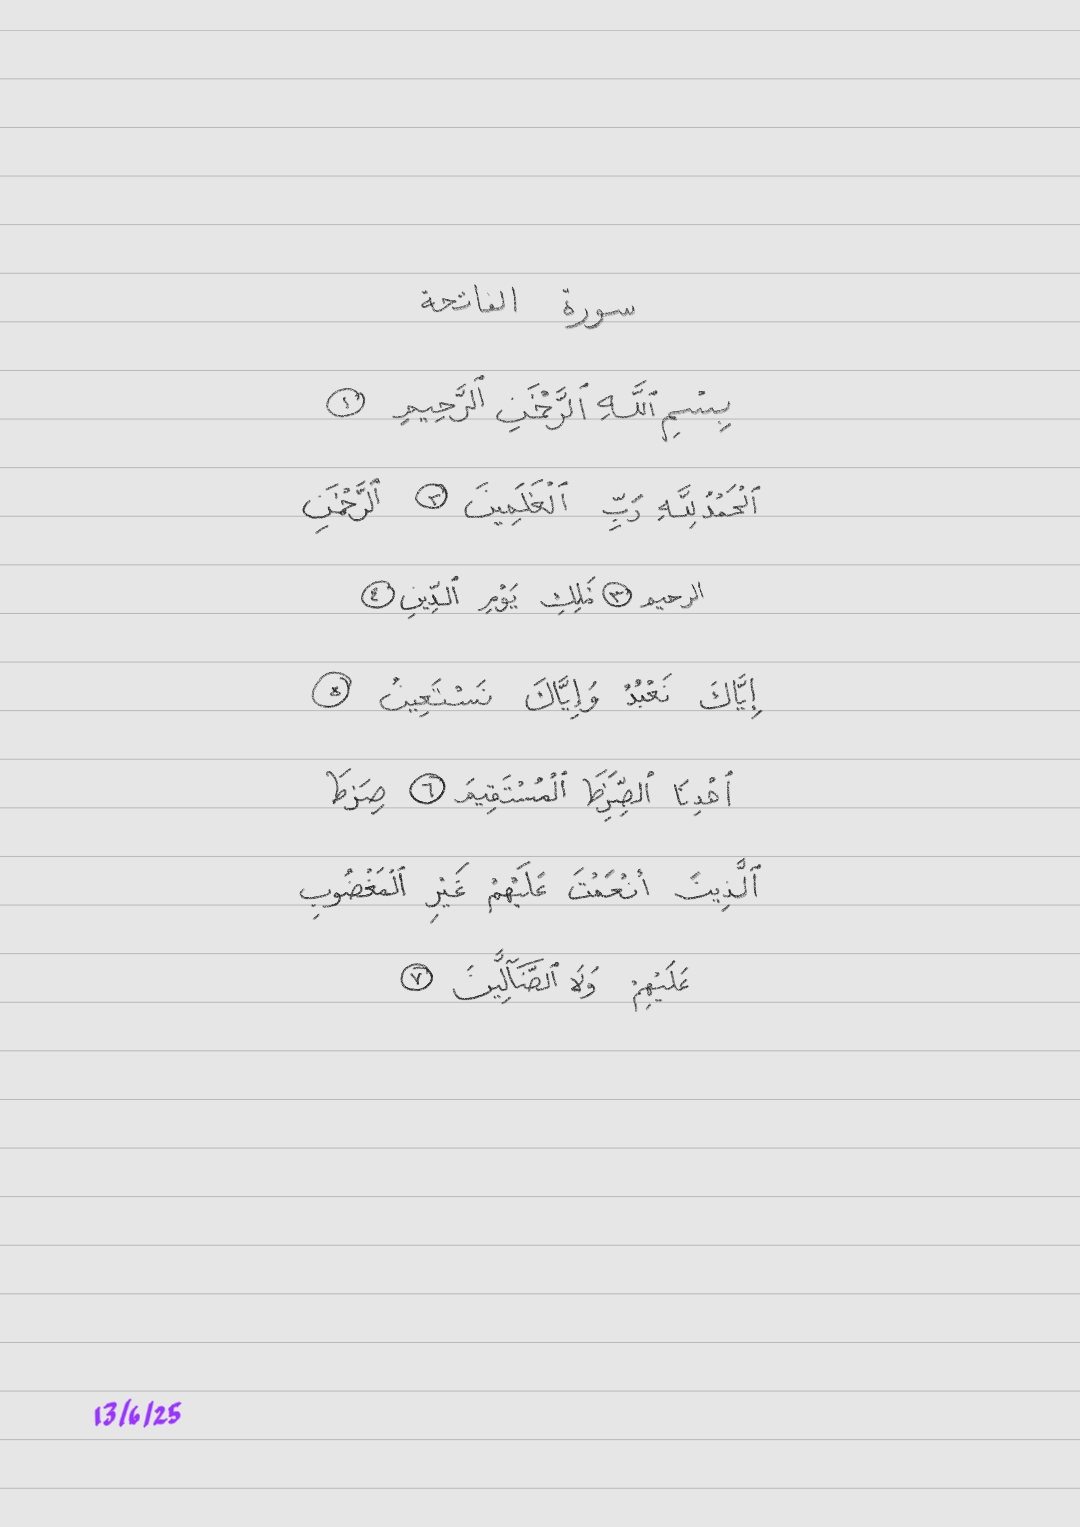 سورة الفاتحة
بِسْمِ ٱللَّهِ ٱلرَّحْمَٰنِ ٱلرَّحِيمِ ١
ٱلْحَمْدُ لِلَّهِ رَبِّ ٱلْعَٰلَمِينَ ٢ ٱلرَّحْمَٰنِ
الرحيم ٣ مَٰلِكِ يَوْمِ ٱلدِّينِ ٤
إِيَّاكَ نَعْبُدُ وَإِيَّاكَ نَسْتَعِينُ ٥
ٱهْدِنَا ٱلصِّرَٰطَ ٱلْمُسْتَقِيمَ ٦ صِرَٰطَ
ٱلَّذِينَ أَنْعَمْتَ عَلَيْهِمْ غَيْرِ ٱلْمَغْضُوبِ
عَلَيْهِمْ وَلَا ٱلضَّآلِّينَ ٧
13/6/25